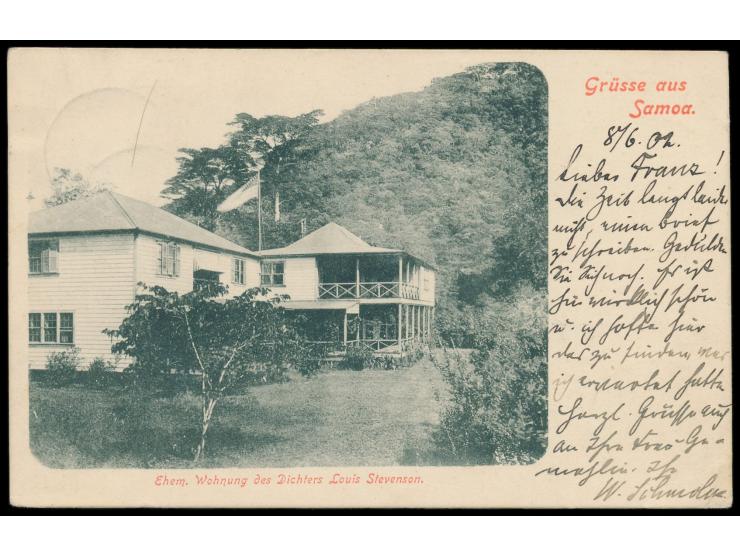 Grüsse aus
Samoa.
8/6. 02.
Lieber Franz!
Die Zeit langt leider
nicht, einen Brief
zu schreiben. Gedulden
Sie Sich noch. Es ist
hier wirklich schön
u. ich hoffe hier
das zu finden, was
ich erwartet hatte
Herzl. Grüsse auch
an Ihre Frau Ge-
mahlin. Ihr
W.
Ehem. Wohnung des Dichters Louis Stevenson.